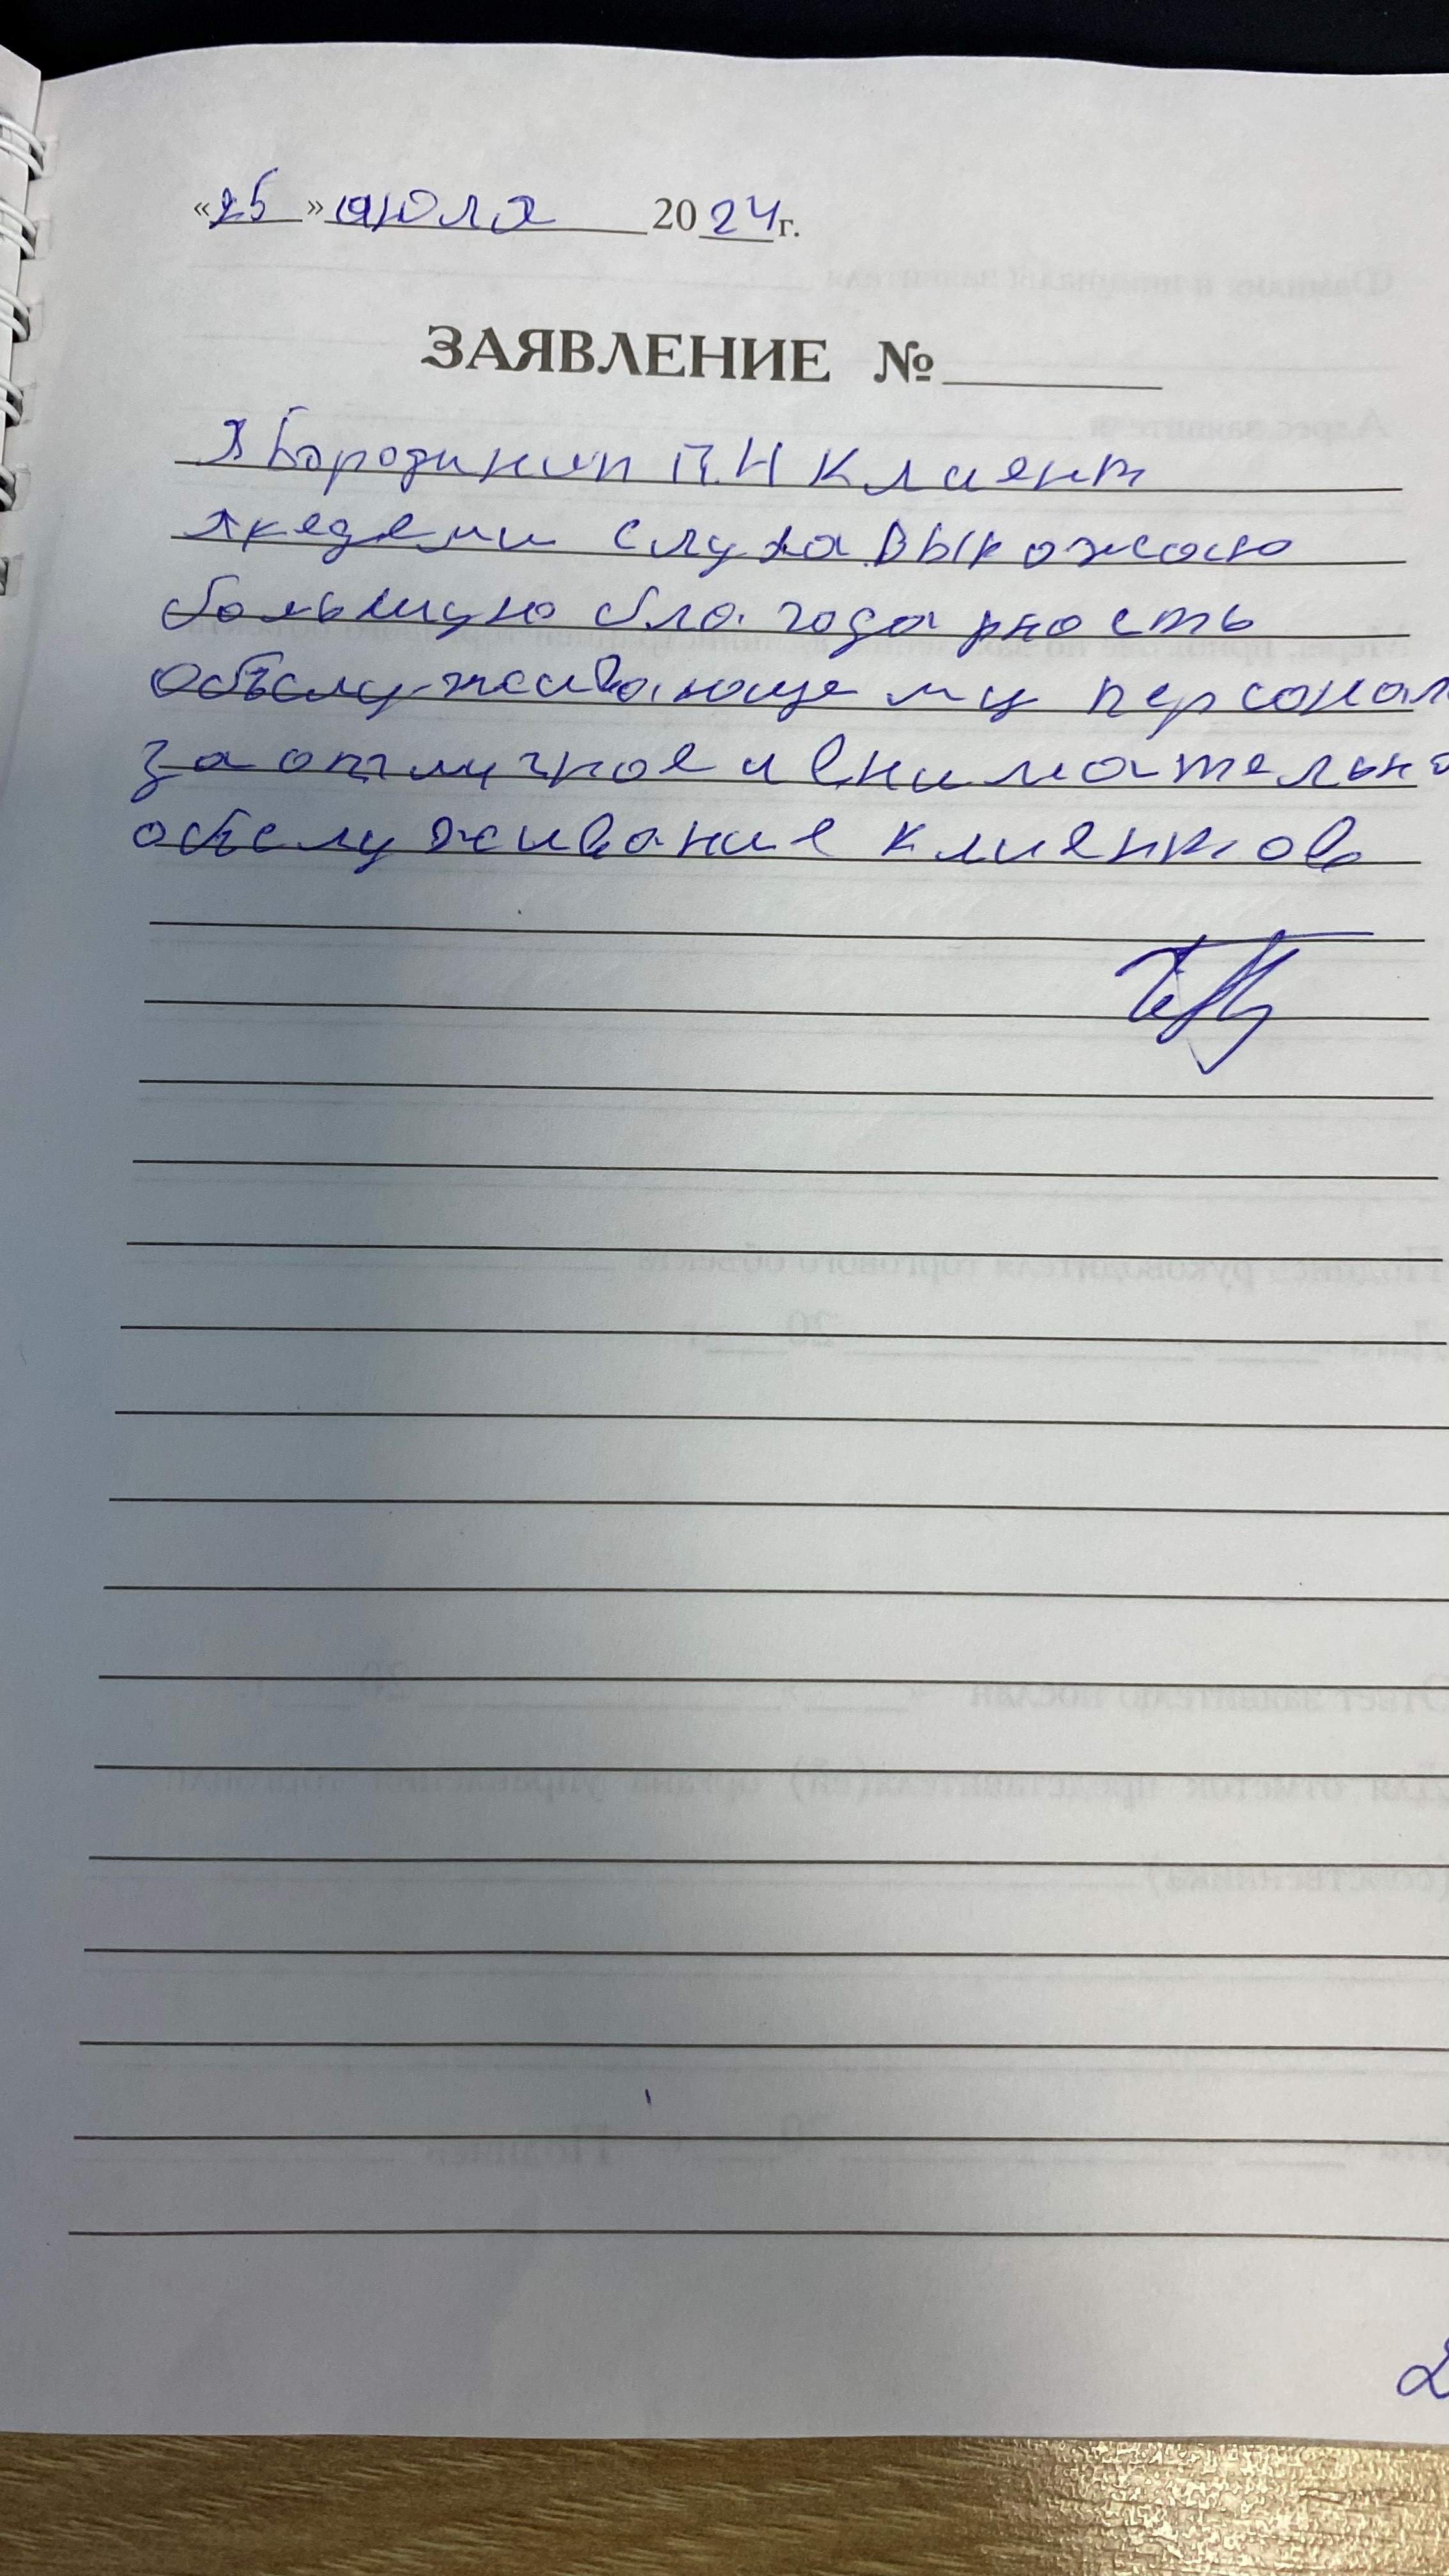 «25» июля 2024 г.
ЗАЯВЛЕНИЕ №
Я Бородинин П.Н Клиент
Акедеми слуха выражаю
большую благодарность
обьслуживающему персонал
за отличное и внимательно
обьслуживание клиентов